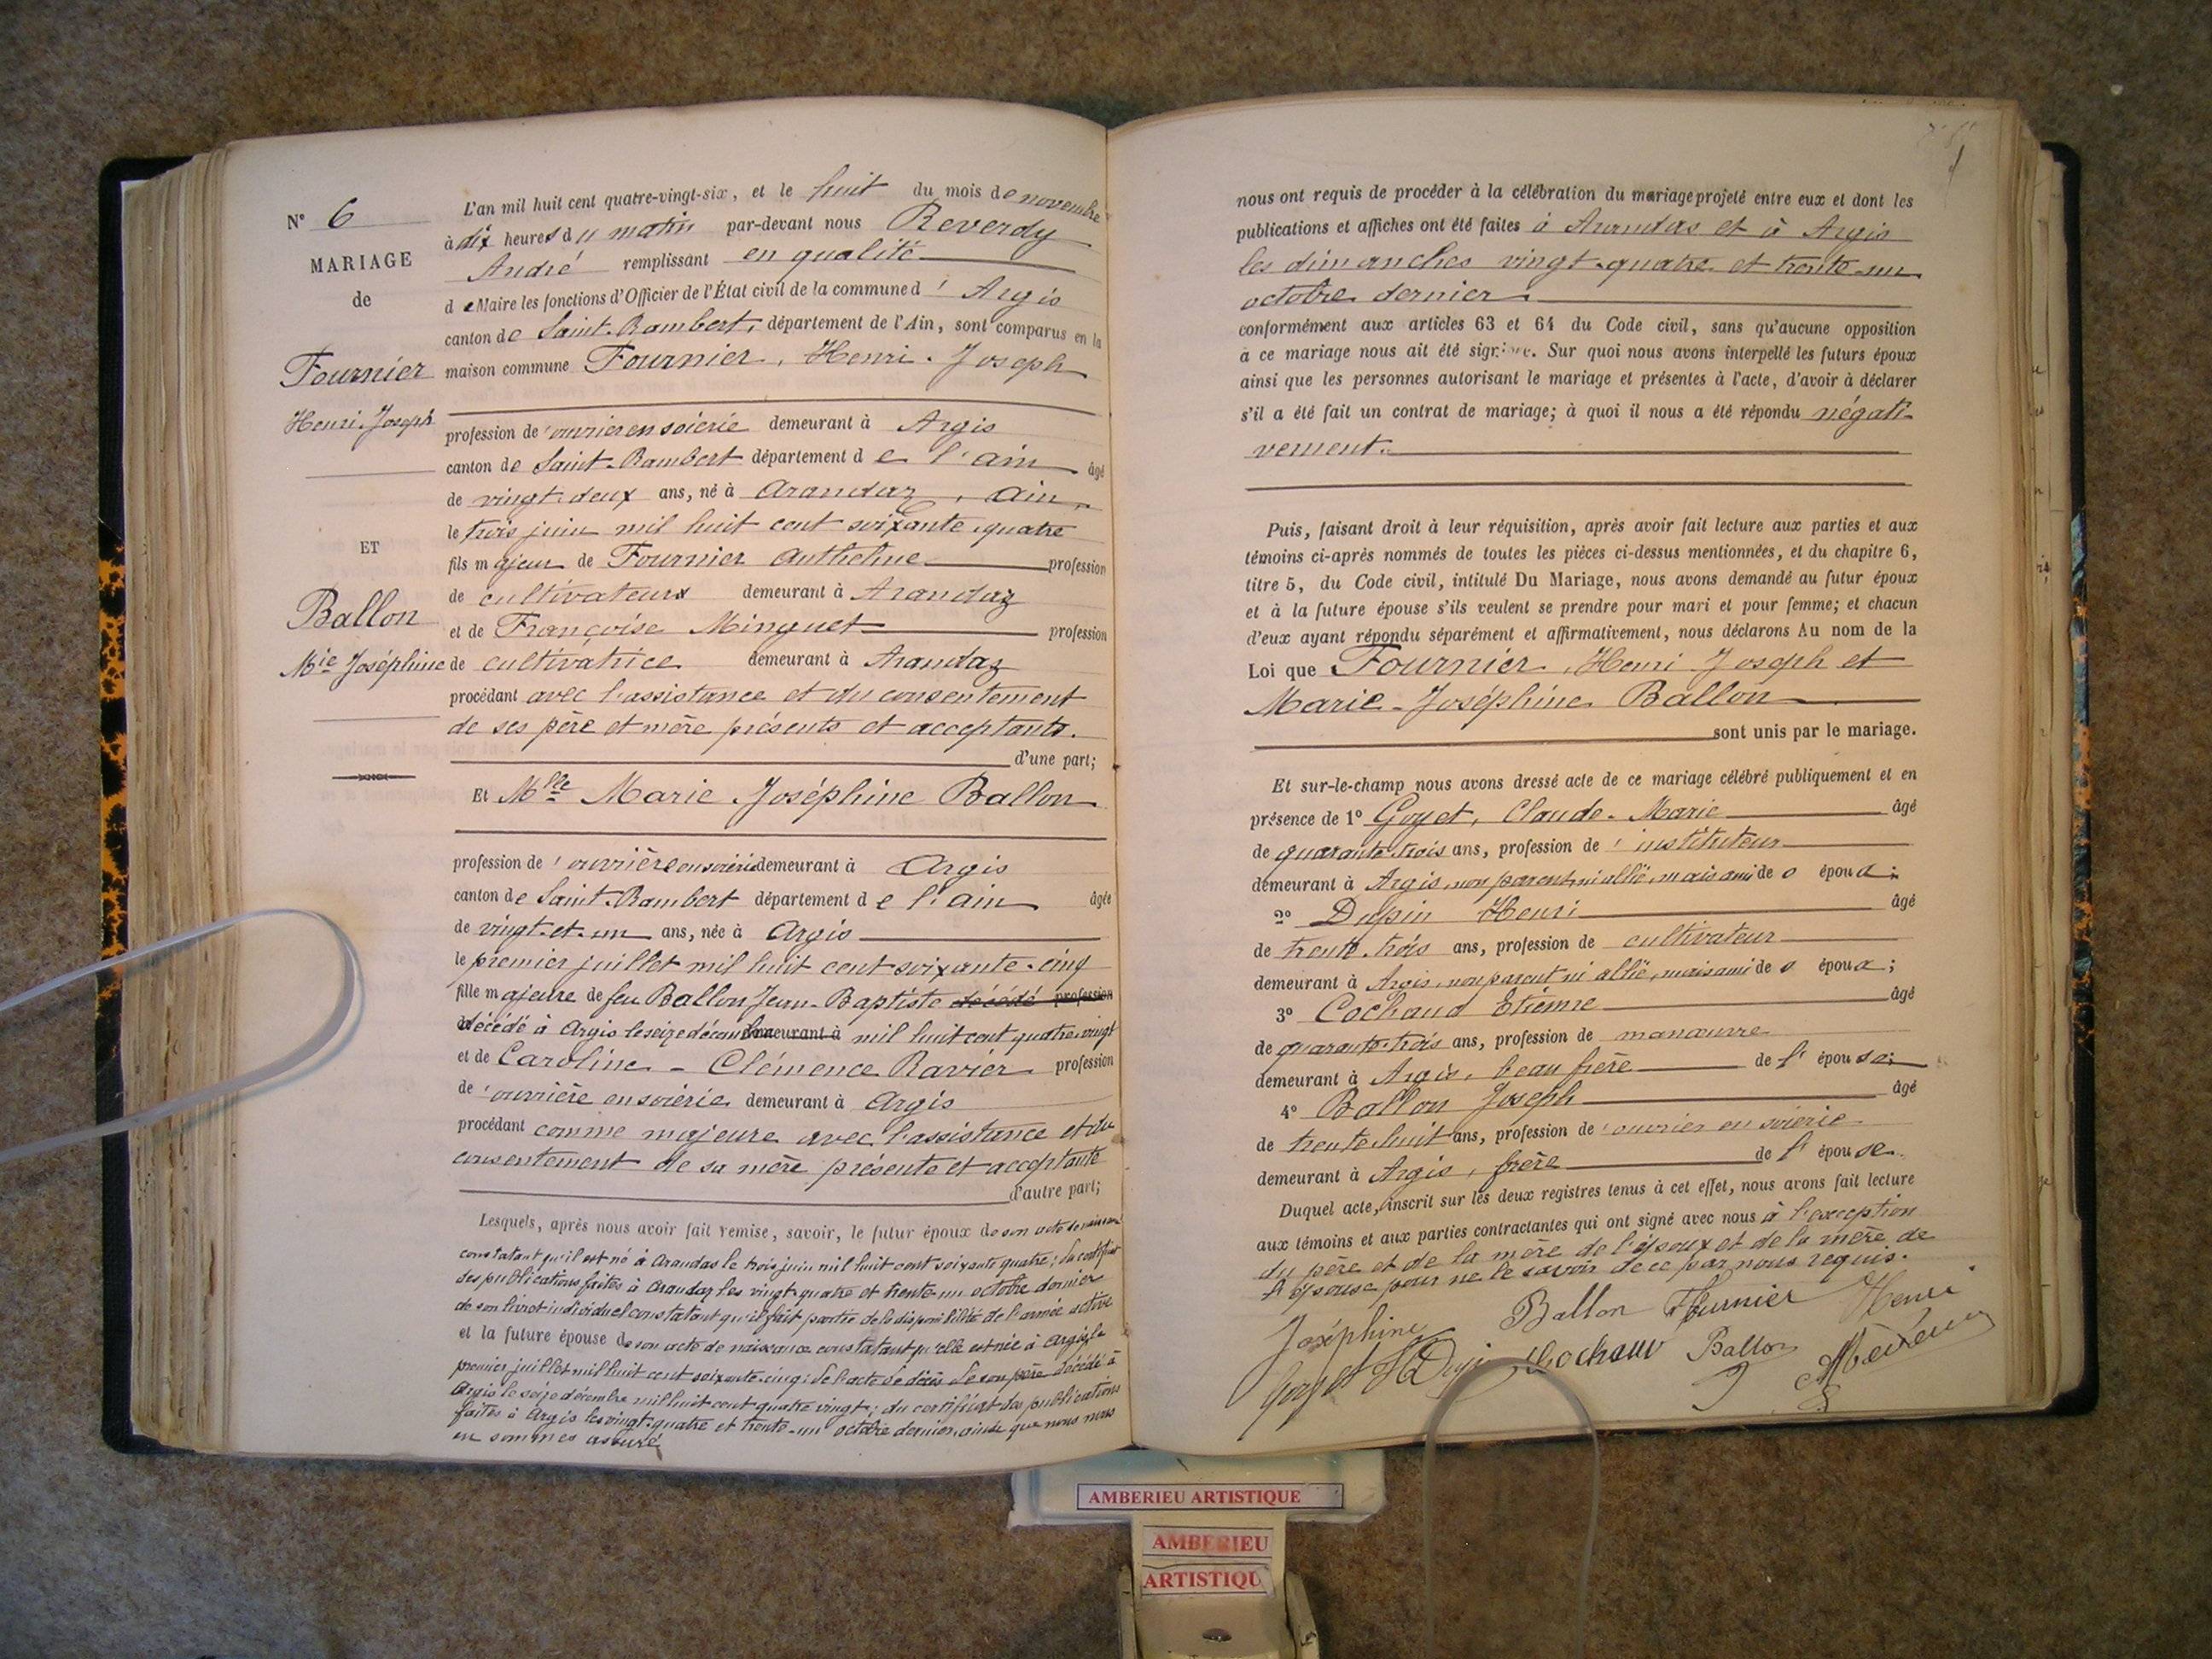 N° 6
MARIAGE
de
Fournier
Henri-Joseph
ET
Ballon
Mie Joséphine
L'an mil huit cent quatre-vingt-six, et le huit du mois de novembre
à dix heures du matin par-devant nous Reverdy
André remplissant en qualité
de Maire les fonctions d'Officier de l'État civil de la commune d'Argis
canton de Saint-Rambert, département de l'Ain, sont comparus en la
maison commune Fournier, Henri-Joseph
profession de ouvrier en soierie demeurant à Argis
canton de Saint-Rambert département de l'ain âgé
de vingt-deux ans, né à Arandaz, Ain,
le trois juin mil huit cent soixante-quatre
fils majeur de Fournier Anthelme profession
de cultivateurs demeurant à Arandaz
et de Françoise Minguet profession
de cultivatrice demeurant à Arandaz
procédant avec l'assistance et du consentement
de ses père et mère présents et acceptants.
d'une part;
Et Mlle Marie Joséphine Ballon
profession de ouvrière en soierie demeurant à Argis
canton de Saint-Rambert département de l'ain âgée
de vingt-et-un ans, née à Argis
le premier juillet mil huit cent soixante-cinq
fille majeure de feu Ballon Jean-Baptiste décédé profession
décédé à Argis le seize décembre demeurant à mil huit cent quatre-vingt
et de Caroline-Clémence Ravier profession
de ouvrière en soierie demeurant à Argis
procédant comme majeure avec l'assistance et du
consentement de sa mère présente et acceptante
d'autre part;
Lesquels, après nous avoir fait remise, savoir, le futur époux de son acte de naissance
constatant qu'il est né à Arandas le trois juin mil huit cent soixante quatre; du certificat
des publications faites à Arandaz les vingt-quatre et trente-un octobre dernier
de son livret individuel constatant qu'il fait partie de la disponibilité de l'armée active
et la future épouse de son acte de naissance constatant qu'elle est née à Argis le
premier juillet mil huit cent soixante-cinq; de l'acte de décès de son père décédé à
Argis le seize décembre mil huit cent quatre vingt; du certificat des publications
faites à Argis les vingt-quatre et trente-un octobre dernier, ainsi que nous nous
en sommes assuré
nous ont requis de procéder à la célébration du mariage projeté entre eux et dont les
publications et affiches ont été faites à Arandas et à Argis
les dimanches vingt-quatre et trente-un
octobre dernier
conformément aux articles 63 et 64 du Code civil, sans qu'aucune opposition
à ce mariage nous ait été signifiée. Sur quoi nous avons interpellé les futurs époux
ainsi que les personnes autorisant le mariage et présentes à l'acte, d'avoir à déclarer
s'il a été fait un contrat de mariage; à quoi il nous a été répondu négati-
vement.
Puis, faisant droit à leur réquisition, après avoir fait lecture aux parties et aux
témoins ci-après nommés de toutes les pièces ci-dessus mentionnées, et du chapitre 6,
titre 5, du Code civil, intitulé Du Mariage, nous avons demandé au futur époux
et à la future épouse s'ils veulent se prendre pour mari et pour femme; et chacun
d'eux ayant répondu séparément et affirmativement, nous déclarons Au nom de la
Loi que Fournier, Henri Joseph et
Marie-Joséphine Ballon
sont unis par le mariage.
Et sur-le-champ nous avons dressé acte de ce mariage célébré publiquement et en
présence de 1° Goyet, Claude-Marie âgé
de quarante-trois ans, profession de instituteur
demeurant à Argis, non parent, ni allié, mais ami de s époux;
2° Dupin Henri âgé
de trente-trois ans, profession de cultivateur
demeurant à Argis, non parent ni allié, mais ami de s époux;
3° Cochaud Etienne âgé
de quarante-trois ans, profession de manœuvre
demeurant à Argis, beau frère de l'épouse;
4° Ballon Joseph âgé
de trente-huit ans, profession de ouvrier en soierie
demeurant à Argis, frère de l'épouse
Duquel acte, inscrit sur les deux registres tenus à cet effet, nous avons fait lecture
aux témoins et aux parties contractantes qui ont signé avec nous à l'exception
du père et de la mère de l'époux et de la mère de
l'épouse pour ne le savoir de ce par nous requis.
Joséphine Ballon Fournier Henri
Goyet H Dupin Cochaud Ballon
AMBERIEU ARTISTIQUE
AMBERIEU
ARTISTIQU